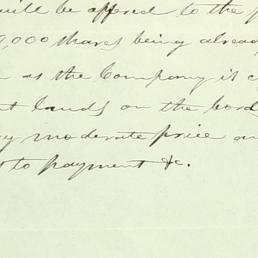 will be offered to the p
9,000 shares being alread
as the Company is c
t lands on the bord
y moderate price an
t to payment &c.